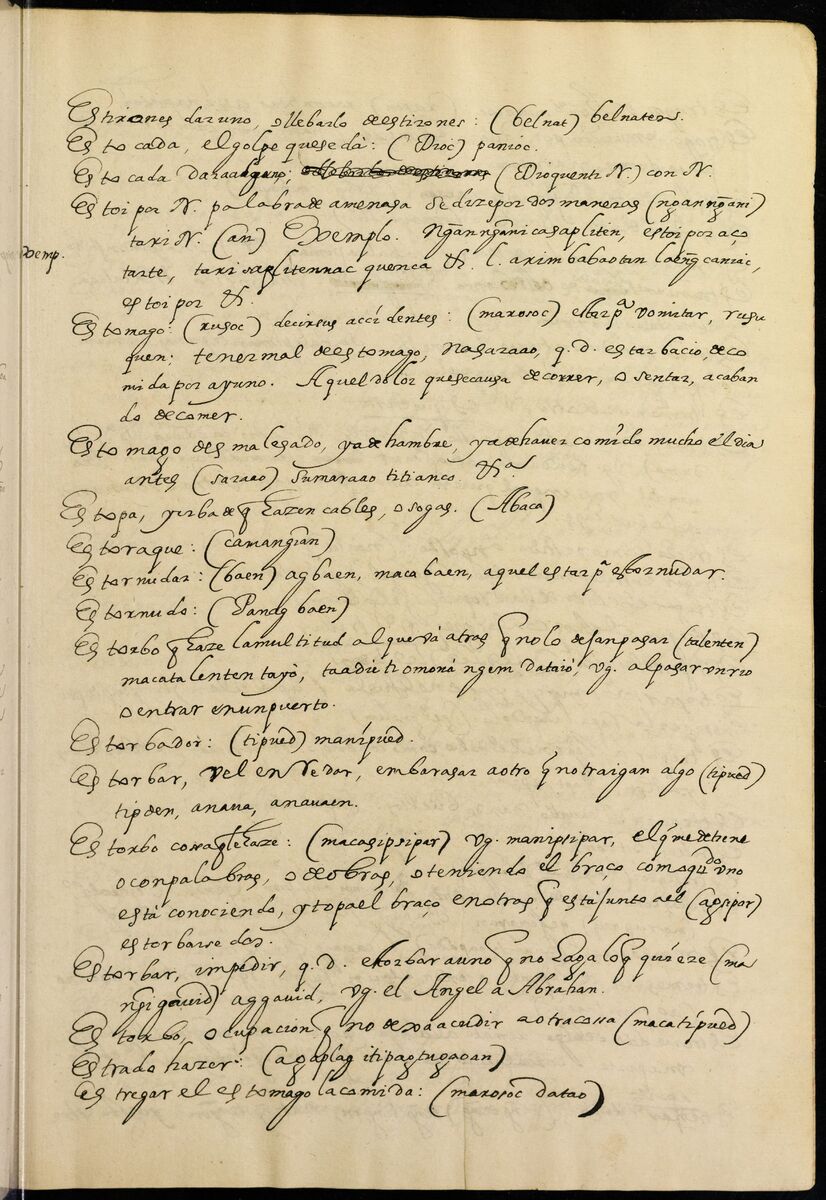 Estirones dar uno, ollebarlo de estirones: (belnat) belnaten.
Es to cada, el golpe que se dà: (Dioc) panioc.
Es to cada Dara alguno; (Dioquenti N.) con N.
Es toi por N. palabra de amenasa se dize por dos maneras (ngannḡani)
taxi N. (an) Exemplo. Nḡanngani casapliten, estoi por aço
exemp.
tarte, taxi saplitennac quenca &. l. arimbabaotan laenḡ caniac,
es toi por &.
Es tomago: (rusoc) decirsus accidentes: (maxosoc) estar pª vomitar, rusu
quen; tener mal de estomago, Nasaraao, q. d. estar bacio, de co
mida por ayuno. Aquel dolor que se causa de correr, o sentar, acaban
do de comer.
Estomago desmalesado, ya de hambre, ya de haver comido mucho el dia
antes (saraao) sumaraao titianco &ª.
Es topa, yerba de q̃ hazen cables, o sogas. (Abaca)
Es toraque: (camangian)
Es tornudar: (baen) agbaen, maca baen, aquel estar pª estornudar.
Es tornudo: (Panag baen)
Es torbo q̃ haze la multitud al que và atras q̃ no lo dejan pasar (talenten)
macatalenten tayò, taadu ti omonà ngem dataió, vg. al pasar un rio
o entrar en un puerto.
Es torbador: (tipùed) manípued.
Es torbar, vel enRedar, embarasar a otro q̃ no traigan algo (tipùed)
tipden, anaua, anauaen.
Es torbo cossa q̃ le haze: (macasipsipar) vg. manipsipar, el q̃ me detiene
o con palabras, o de obras, o teniendo el braço como qᵈᵒ uno
està conociendo, y topa el braço en otras q̃ està junto a el (agsipor)
es torbarse dos.
Es torbar, impedir, q. d. estorbar a uno q̃ no haga lo q̃ quiere (ma
aggauid, vg. el Angel a Abrahan.
Es torbo, ocupacion q̃ no dexa acudir a otra cossa (macatipùed)
Es trado hazer: (agaplag itipagtugaoan)
Es tregar el es tomago la comida: (maxosoc datao)